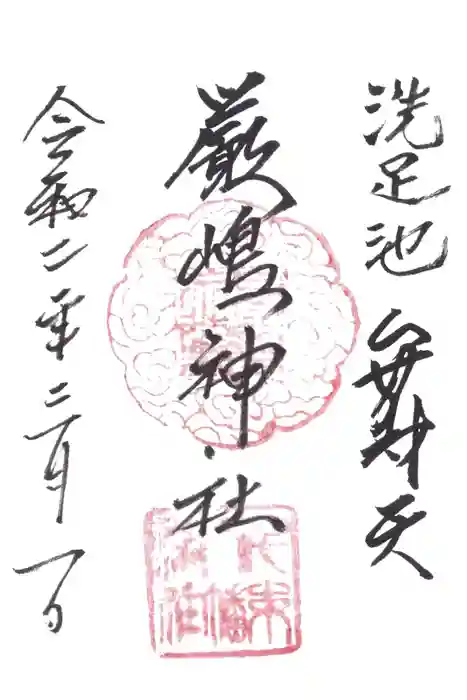 洗足池 弁財天
厳嶋神社
令和二年二月一日